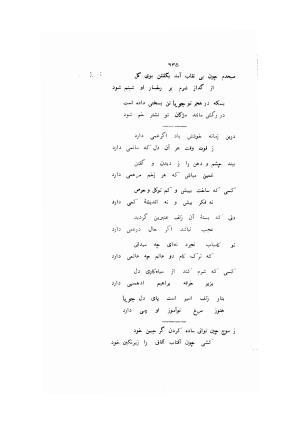 ۹۳۵
صبحدم چون بی نقاب آمد بگلشن بوی گل
از گداز شرم بر رخسار او شبنم شود
بسکه در هجر تو جویا تن بسختی داده است
در رگش مانند مژگان تو نشتر خم شود
درین زمانه خوشش باد اگر غمی دارد
ز قوت وقت هر آن دل که ماتمی دارد
ببند چشم و دهن را ز دیدن و گفتن
غمین مباش که هر زخم مرهمی دارد
کسی که ساخت ببیش و کم توکل و حرص
نه فکر بیش و نه اندیشهٔ کمی دارد
دلی که بستهٔ آن زلف عنبرین گردید
عجب نباشد اگر حال درهمی دارد
تو کامیاب تجرد نه‌ای چه میدانی
که ترک کام دو عالم چه عالمی دارد
کسی که شرم کند از سیاه‌کاری دل
بزیر خرقه براهیم ادهمی دارد
بتار زلف اسیر است پای دل جویا
هنوز مرغ نوآموز او دارد
ز موج چین توانی ساده کردن گر جبین خود
کشی چون آفتاب آفاق را زیرنگین خود